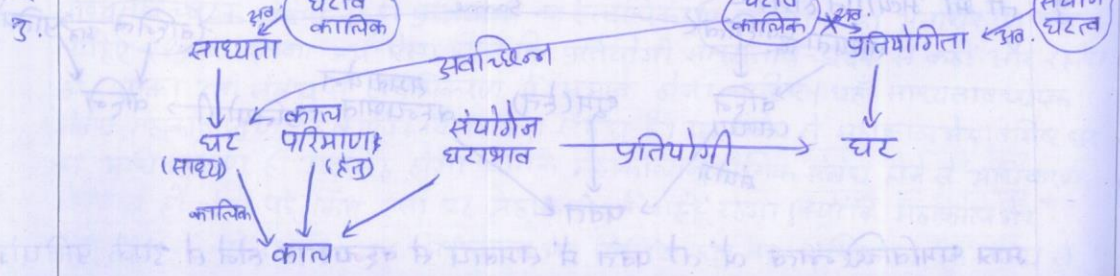 3.
अव. घटत्व कालिक
घटत्व कालिक अव. संयोग घटत्व
साध्यता अवच्छिन्न प्रतियोगिता अव.
घट (साध्य) काल परिमाण (हेतु) संयोगेन घटाभाव प्रतियोगी घट
कालिक
काल